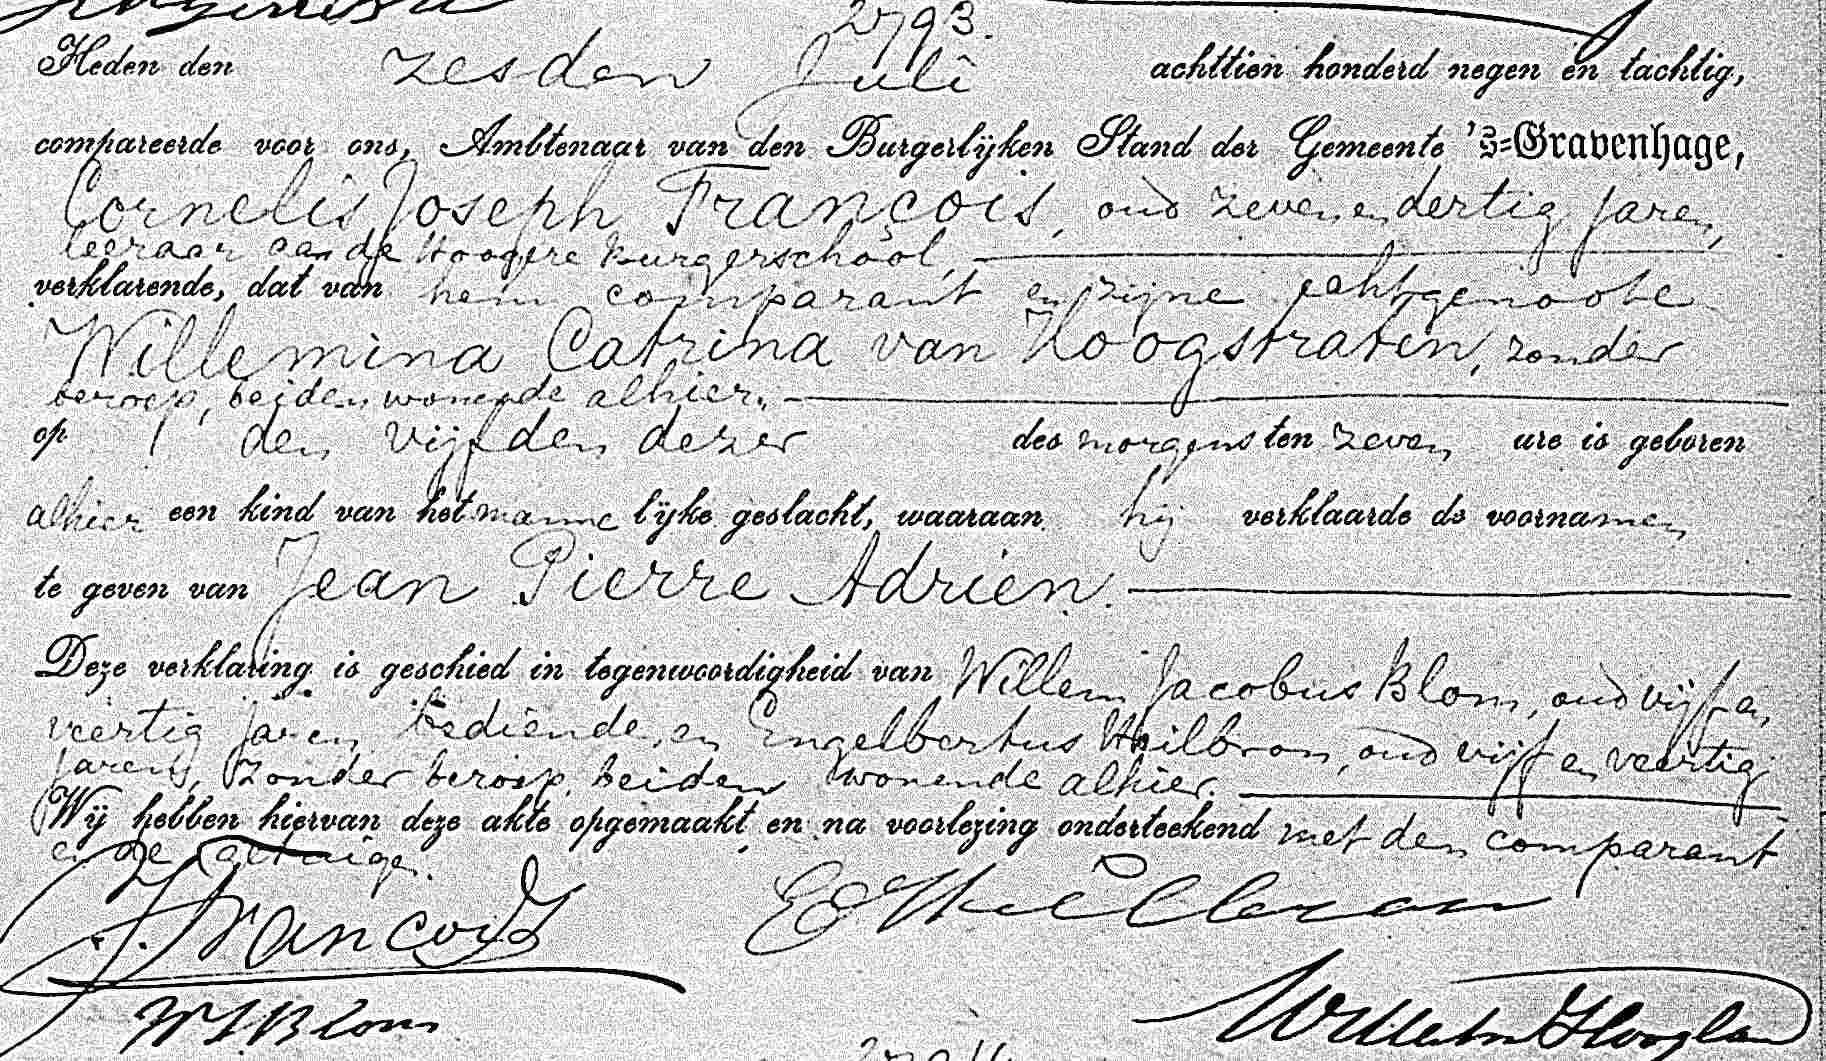 2793.
Heden den zesden Juli achttien honderd negen en tachtig,
compareerde voor ons, Ambtenaar van den Burgerlijken Stand der Gemeente 's-Gravenhage,
Cornelis Joseph François, oud zeven en dertig jaren,
leeraar aan de Hoogere Burgerschool,
verklarende, dat van hem comparant en zijne echtgenoote
Willemina Catrina van Hoogstraten, zonder
beroep, beiden wonende alhier,
op den vijfden dezer des morgens ten zeven ure is geboren
alhier een kind van het mannelijke geslacht, waaraan hij verklaarde de voornamen
te geven van Jean Pierre Adrien.
Deze verklaring is geschied in tegenwoordigheid van Willem Jacobus Blom, oud vijf en
veertig jaren, bediende, en Engelbertus Heilbron, oud vijf en veertig
jaren, zonder beroep, beiden wonende alhier.
Wij hebben hiervan deze akte opgemaakt en na voorlezing onderteekend met den comparant
en de getuigen.
J. François
WJ Blom